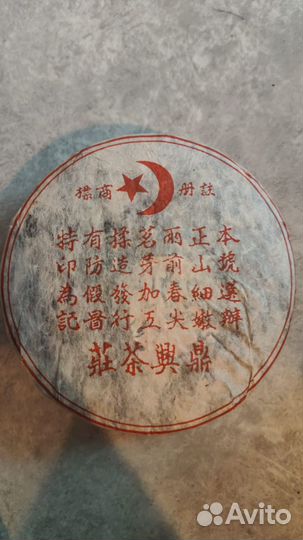 註册商標
本號選辦
正山細嫩
雨前春尖
茗芽加工
揉造發行
有防假冒
特印為記
鼎興茶莊
Avito